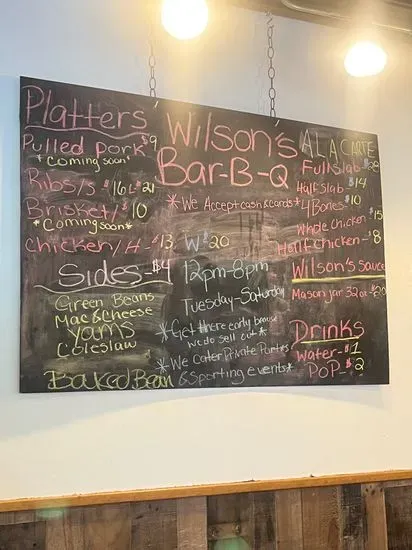 Platters
Pulled Pork $9
*Coming soon*
Ribs/s $16 L $21
Brisket/ $10
*Coming soon*
Chicken/H - $13 W $20
Sides - $4
Green Beans
Mac & Cheese
Yams
Coleslaw
Baked Bean
Wilson's
Bar-B-Q
*We Accept cash & cards*
12pm-8pm
Tuesday-Saturday
*Get there early because
we do sell out*
*We Cater Private Parties
& Sporting events*
A LA CARTE
Full Slab - $28
Half Slab - $14
4 Bones - $10
Whole Chicken - $15
Half Chicken - $8
Wilson's Sauce
Mason jar 32 oz - $20
Drinks
Water - $1
PoP - $2